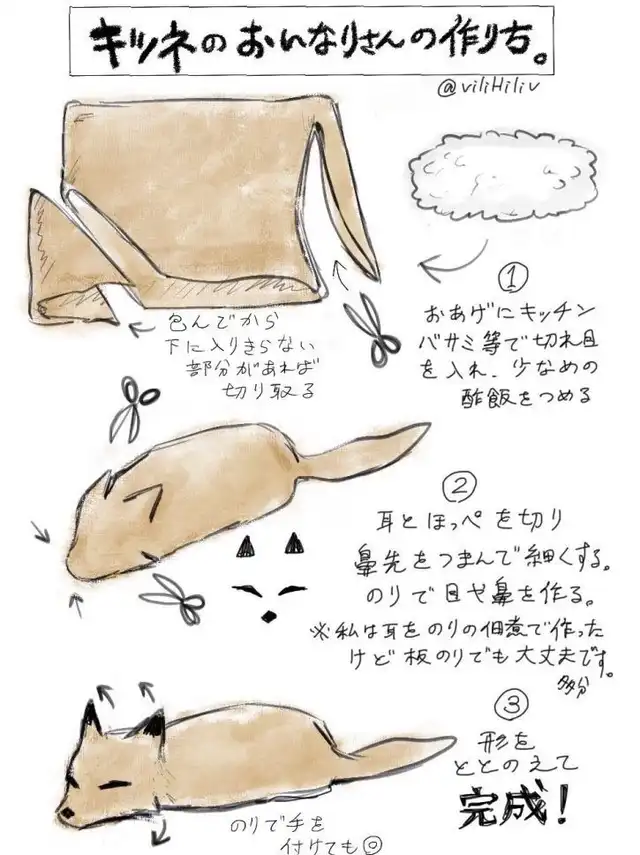 キツネのおいなりさんの作り方。
@viliHiliv
①
おあげにキッチン
バサミ等で切れ目
を入れ、少なめの
酢飯をつめる
包んでから
下に入りきらない
部分があれば
切り取る
②
耳とほっぺを切り
鼻先をつまんで細くする。
のりで目や鼻を作る。
※私は耳をのりの佃煮で作った
けど板のりでも大丈夫です。
多分
③
形を
ととのえて
完成!
のりで手を
付けても◎